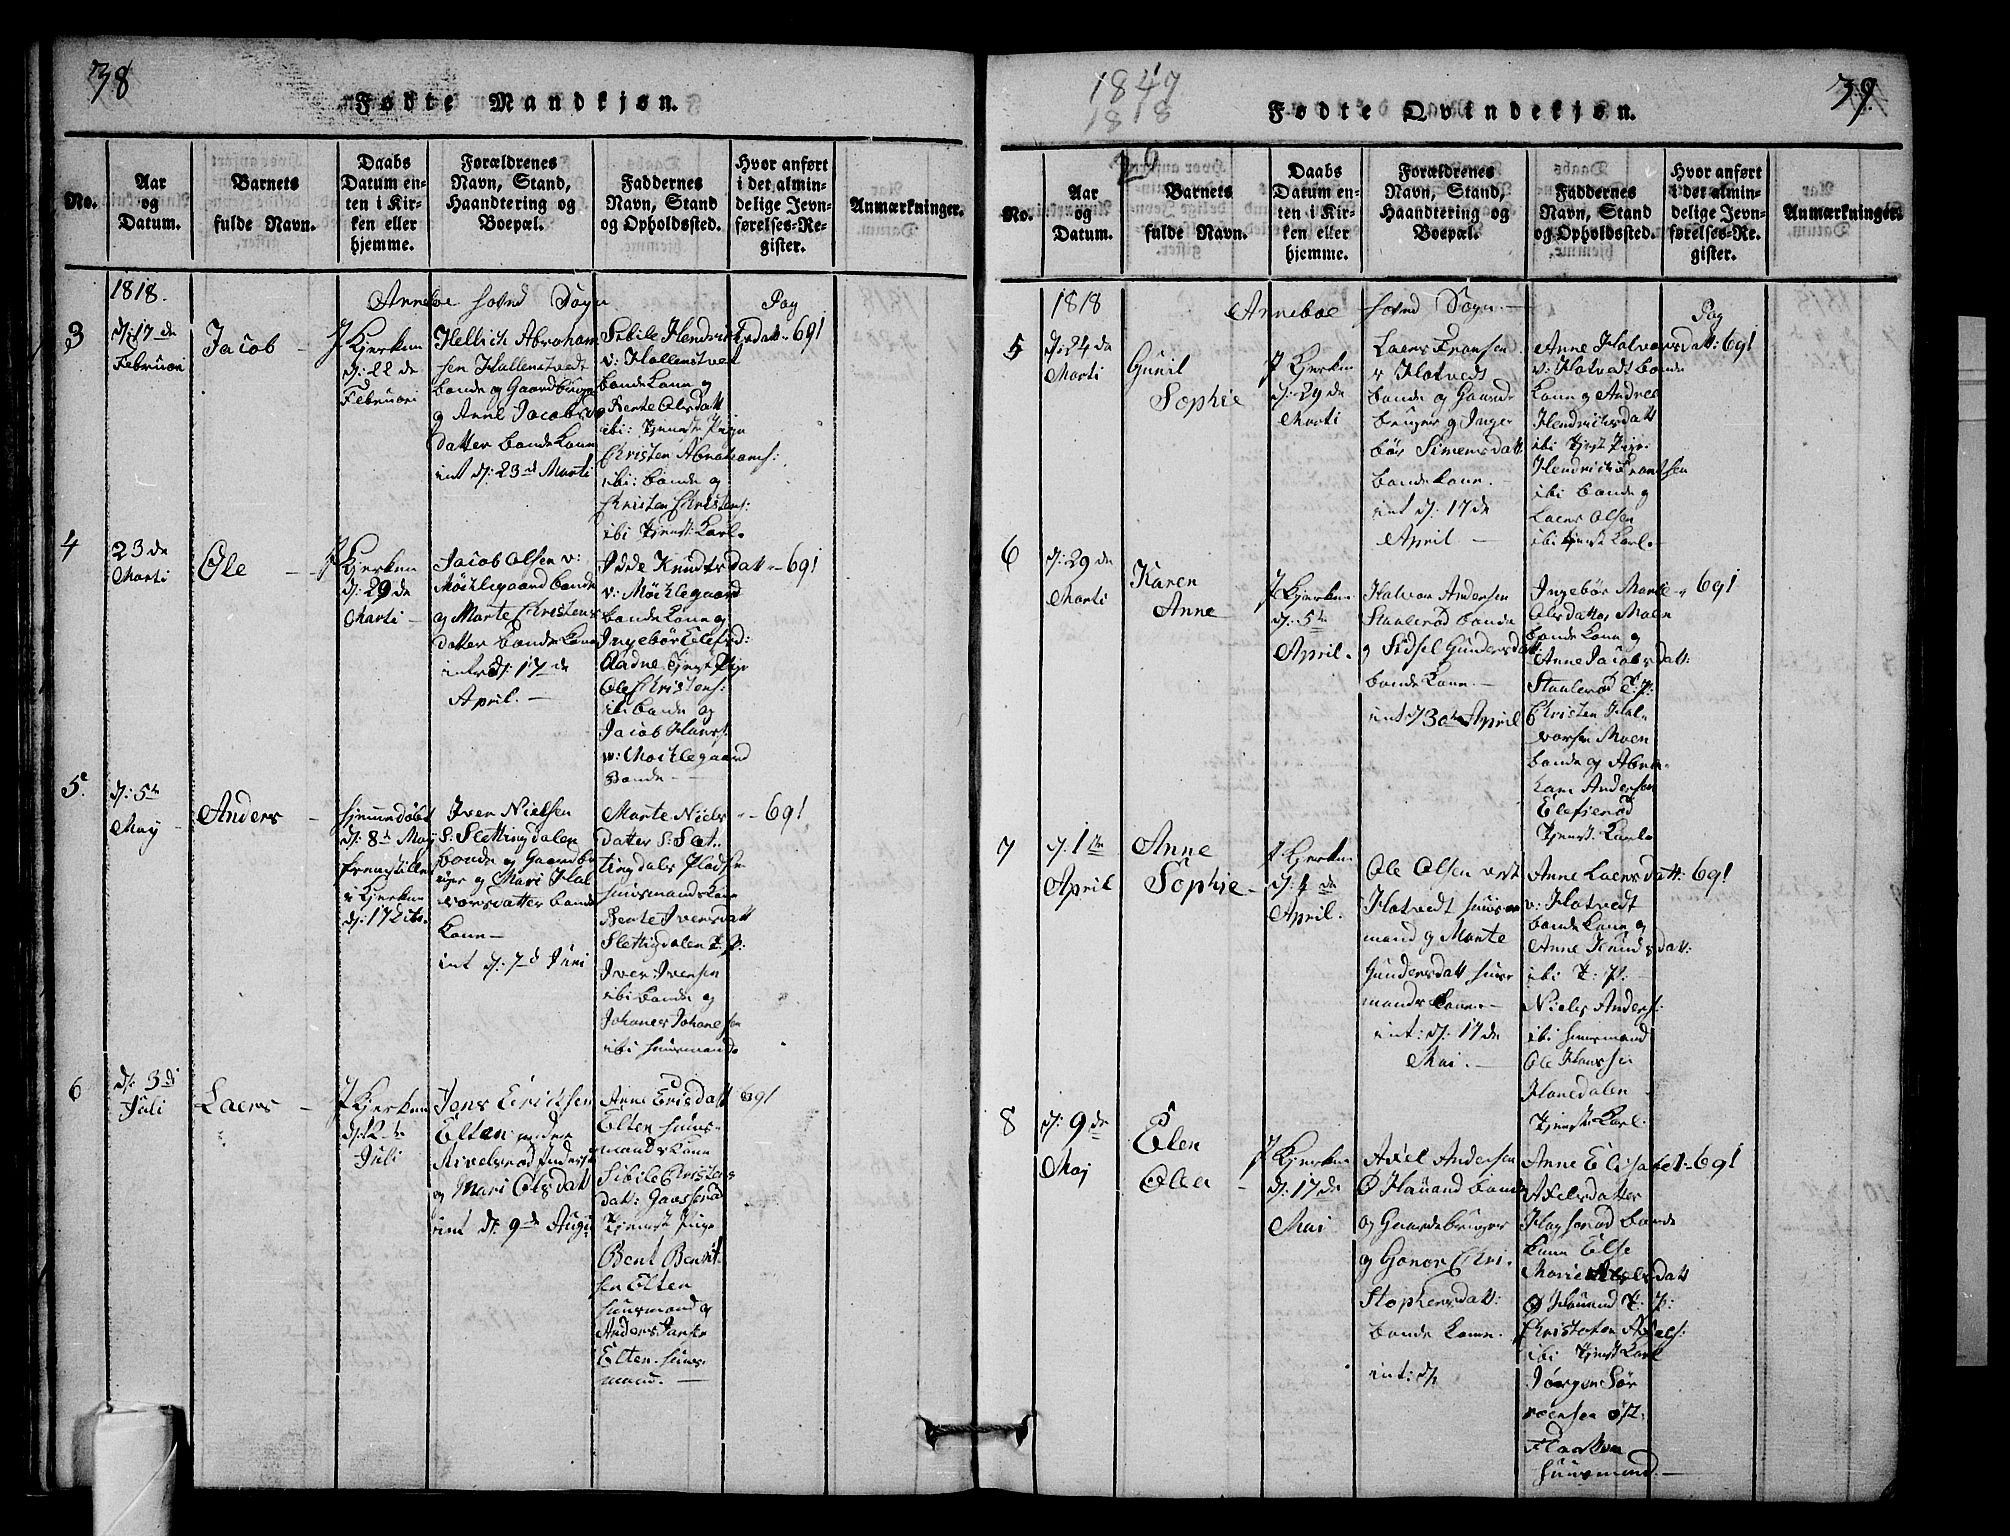 38
Fødte Mandkjøn.
No.
Aar
og
Datum.
Barnets
fulde Navn.
Daabs
Datum en-
ten i Kir-
ken eller
hjemme.
Forældrenes
Navn, Stand,
Haandtering og
Boepæl.
Faddernes
Navn, Stand
og Opholdssted.
Hvor anført
i det almin-
delige Jevn-
førelses-Re-
gister.
Anmærkninger.
1818.
Anneboe Sogn
Pag
3
d: 17 de
Februari
Jacob
J Kjerken
d: 22 de
Februari
Hellrich Abraham
sen Hallenstvedt
bonde og Gaardbruger
og Anne Jacobs
datter bonde Kone
int d: 23 d Marti
Sibille Hendrichsdatt
v: Hallenstvet
bonde Kone og
Bente Olsdatt
ibi: Tjeneste Pige
Christen Abrahams:
ibi: bonde og
Christen Christens:
ibi Tjenst: Karl
691
4
23 de
Marti
Ole
J Kjerken
d: 29 de
Marti
Jacob Olsen v:
Möichlegaard bonde
og Marte Christens
datter bonde Kone
int d: 17 de
April.
Knudtsdatt
v: Möichlegaard
bonde Kone og
Ingebör
Tjenst Pige
Ole Christens:
ibi bonde og
Jacob Hans:
v: Möichlegaard
Bonde
691
5.
d: 5te
May
Anders
hjemmedöbt
d: 8de May
fremstillet
i Kjerken
d: 17 dito.
Iver Nielsen
S: Slettingdalen
bonde og Gaardbr
uger og Mari Hal
vorsdatter bonde
Kone
int d: 7d Juni
Marte Niels
datter S: Slet
tingdals Pladsen
huusmands Kone
Bente Iversdatt
Slettingdalen T: P:
Iver Iversen
ibi bonde og
Johanes Johanesen
ibi huusmand
691
6
d: 3di
Juli
Laers
J Kjerken
d: 12te
Juli
Jens Erichsen
Elten under
og Mari Olsdatt
int d: 9de Augu
Anne Erisdatt
Elten huus-
mands Kone
Sibile Christens
datt:
Tjenest Pige
Bent Bentit
sen Elten
huusmand og
Anders
Elten huus-
mand.
691
1849
1818
39.
Fødte Qvindekjøn.
No.
Aar
og
Datum.
Barnets
fulde Navn.
Daabs
Datum en-
ten i Kir-
ken eller
hjemme.
Forældrenes
Navn, Stand,
Haandtering og
Boepæl.
Faddernes
Navn, Stand
og Opholdssted.
Hvor anført
i det almin-
delige Jevn-
førelses-Re-
gister.
Anmærkninger.
1818
Anneboe Sogn
Pag
5
d: 24 de
Marti
Gunil
Sophie
J Kjerken
d: 29 de
Marti
Laers Fransen
v Hotveds
bonde og Gaards
bruger og Inger
bör Simensdatt
bonde Kone.
int d: 17 de
April.
Anne Halvorsdatt:
v: Hotveds bonde
Kone og Andrea
Hendrichsdatt
ibi Tjenst Pige
Hendrich Frantsen
ibi bonde og
Laers Olsen
ibi tjenst Karl
691
6
d: 29 de
Marti
Karen
Anne
J Kjerken
d: 5te
April.
Halvor Andersen
Staalerød bonde
og Sidsel Gundersdatt
bonde Kone.
int d 30te April
Ingebör Marie
Olsdatter Moen
bonde Kone og
Anne Jacobsdatt:
Staalerød T: P:
Christen Hal-
vorsen Moen
bonde og Abra-
ham Andersen
Elefserød
Tjenst: Karl
691
7
d: 1te
April
Anne
Sophie
J Kjerken
April.
Ole Olsen vest
Hotvedt huus
mand og Marte
Gundersdatt huus
mands Kone.
int: d: 17 de
Mai.
Anne Laersdatt:
v: Hotvedt
bonde Kone og
Anne Knudsdatt:
ibi T: P:
Niels Anders:
ibi huusmand
Ole Hansen
Hanedalen
Tjenst: Karl.
691
8
d: 9 de
May
Elen
Olea
J Kjerken
d: 17 de
Mai
Axel Andersen
Ø Hauand bonde
og Gaardsbruger
og Gonor Chri-
stophersdatt:
bonde Kone.
int: d:
Anne Elisabet
Axelsdatter
bonde
kone Else
Marie Axelsdatt
Ø Hauand T: P:
Christofer Axels:
ibi Tjenst Karl
Jörgen Sör
rensen öst:
huusmand.
691